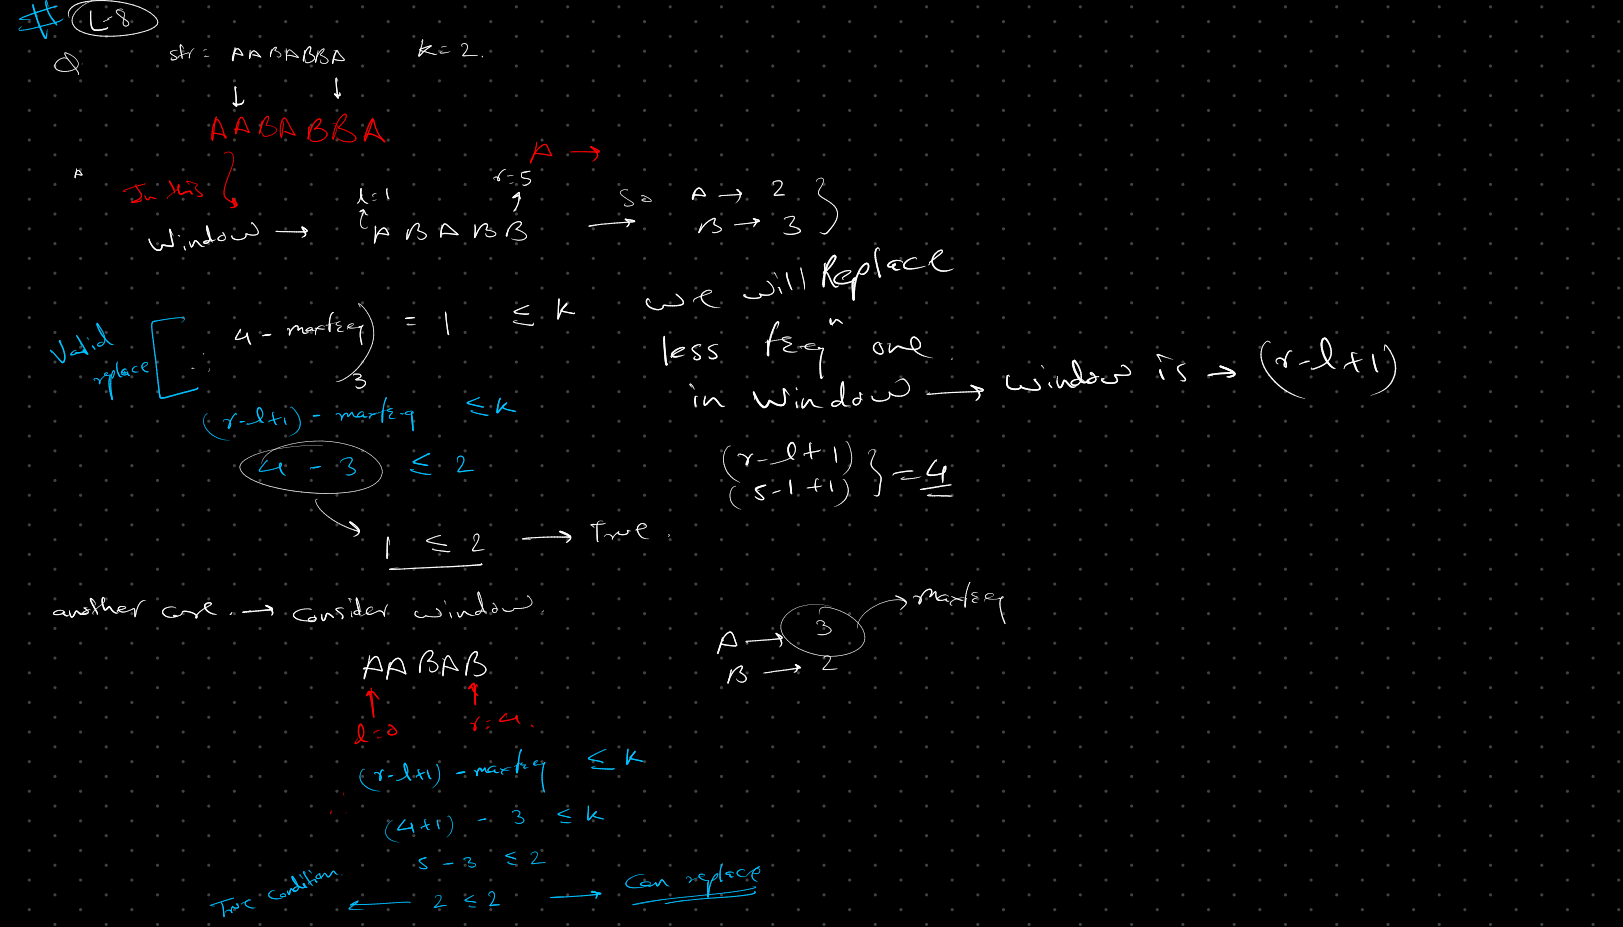 # L-8
Q str = AABABBA k=2.
AABABBA
A →
In this
l=1 r=5
Window → ABABB → So A → 2
B → 3
we will Replace
less freqn one
in window → window is → (r-l+1)
(r-l+1)
(5-1+1) } = 4
Valid replace
4 - maxfreq = 1 ≤ k
3
(r-l+1) - maxfreq ≤ k
4 - 3 ≤ 2
1 ≤ 2 → True.
another case. → Consider window.
AABAB
l=0 r=4.
A → 3 → maxfreq
B → 2
(r-l+1) - maxfreq ≤ k
(4+1) - 3 ≤ k
5 - 3 ≤ 2
True condition ← 2 ≤ 2 → Can replace